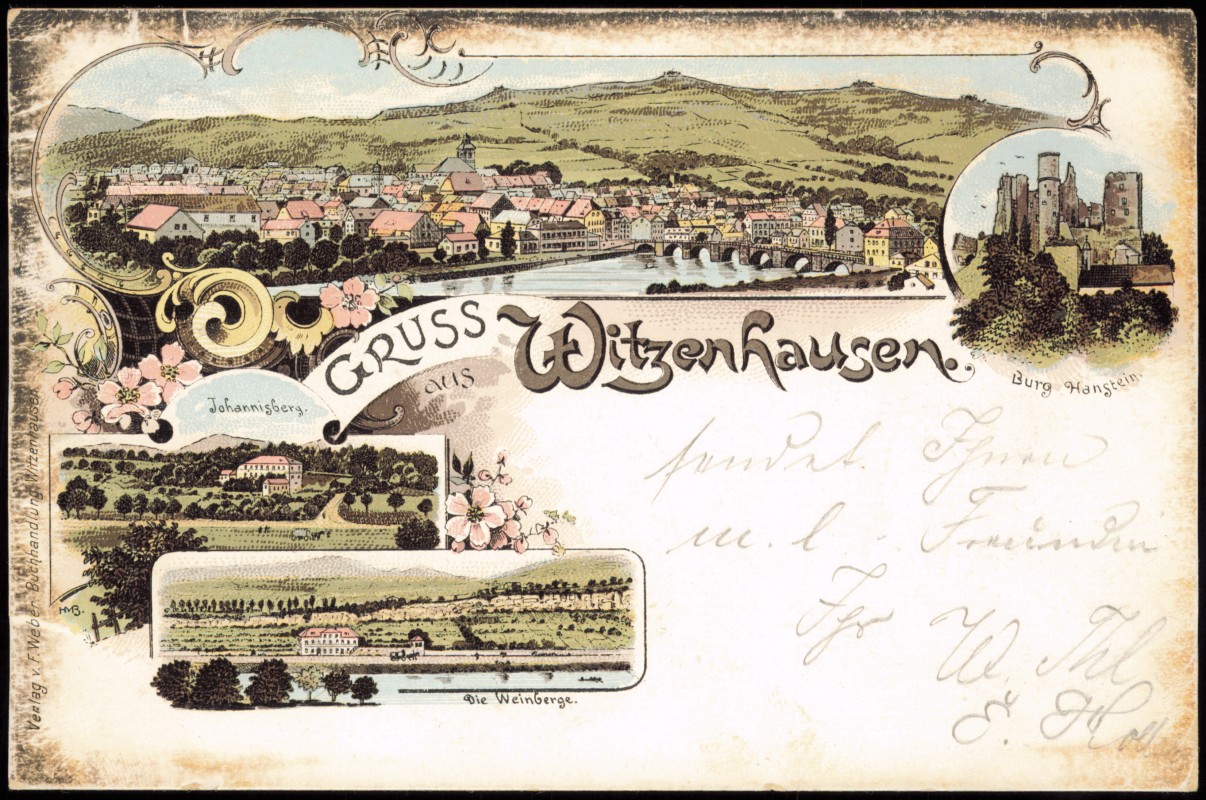 GRUSS
aus
Witzenhausen.
Burg Hanstein.
Johannisberg.
Die Weinberge.
HMB.
Verlag v. F. Weber Buchhandlung, Witzenhausen
sendet. Ihnen
m. l. Freundin
Ihr W.
E.